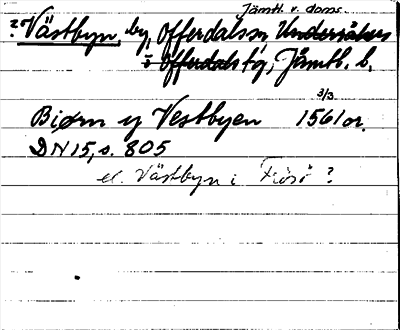 Jämtl. v. doms.
? Västbyn, by, Offerdals sn, Undersåkers
i Offerdals tg, Jämtl. l.
3/3
Biørn y Vestbyen 1561 or.
DN 15, s. 805
el. Västbyn i Frösö ?